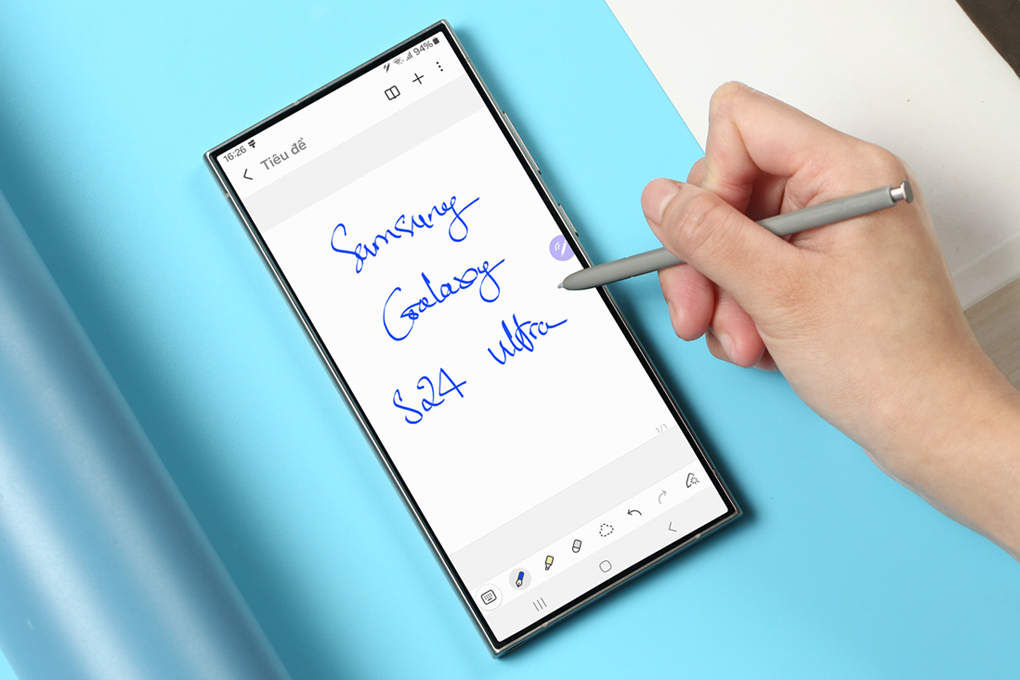 16:26
94%
Tiêu đề
Samsung
Galaxy
S24 Ultra
1/1